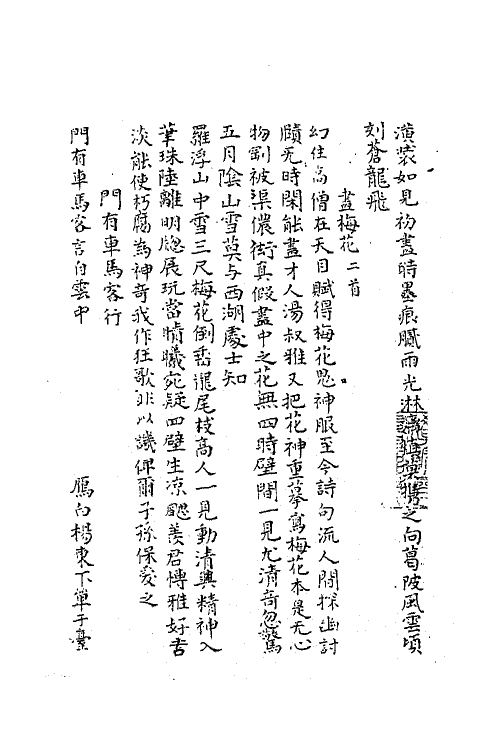 潢裝如見初畫時墨痕膩雨光淋之向葛陂風雲頃
刻蒼龍飛
畫梅花二首
幻住高僧在天目賦得梅花鬼神服至今詩句流人間探幽討
賾无時閑能畫才人湯叔雅又把花神重摹寫梅花本是无心
物劉被渠儂衒真假畫中之花無四時壁間一見尤清奇忽驚
五月陰山雪莫与西湖處士知
羅浮山中雪三尺梅花倒垂龍尾枝高人一見動清興精神入
筆珠陸離明牕展玩當晴曦宛疑四壁生凉颸羡君愽雅好古
淡能使朽腐為神奇我作狂歌非以譏俾爾子孫保愛之
門有車馬客行
門有車馬客言自雲中鴈白楊東下單于臺